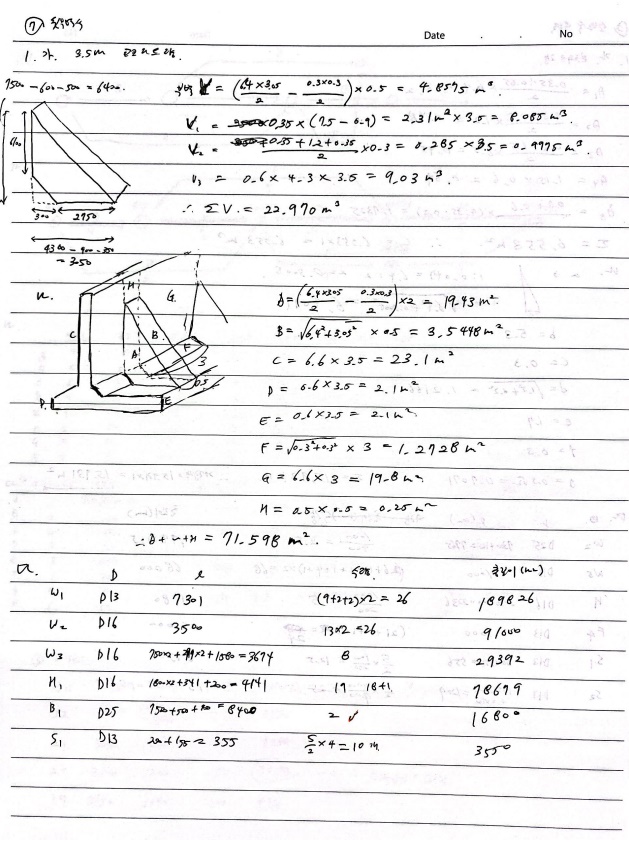 Date . . No
⑦
1. 가. 3.5m
7500 - 600 - 500 = 6400.
V = (6.4×3.05/2 - 0.3×0.3/2) × 0.5 = 4.8575 m³
V₁ = 0.35 × (7.5 - 0.9) = 2.31 m² × 3.5 = 8.085 m³.
V₂ = 0.35 + 1.2 + 0.35/2 × 0.3 = 0.285 × 3.5 = 0.9975 m³.
V₃ = 0.6 × 4.3 × 3.5 = 9.03 m³.
∴ ΣV = 22.970 m³
300 2750
4300 - 900 - 350
= 3050
나.
H G. C B. A F 3 0.5 D. E
A = (6.4×3.05/2 - 0.3×0.3/2) × 2 = 19.43 m².
B = √6.4² + 3.05² × 0.5 = 3.5448 m².
C = 6.6 × 3.5 = 23.1 m²
D = 0.6 × 3.5 = 2.1 m²
E = 0.6 × 3.5 = 2.1 m²
F = √0.3² + 0.3² × 3 = 1.2728 m²
G = 6.6 × 3 = 19.8 m²
H = 0.5 × 0.5 = 0.25 m²
∴ A + ~ + H = 71.598 m².
다. D l 수량. 총길이 (m)
W₁ D13 7301 (9+2+2)×2 = 26 189826
W₂ D16 3500 13×2 = 26 91000
W₃ D16 = 3674 8 29392
H₁ D16 = 4141 19 18+1 78679
B₁ D25 = 8400 2 ✓ 16800
S₁ D13 = 355 5/2 × 4 = 10 3550